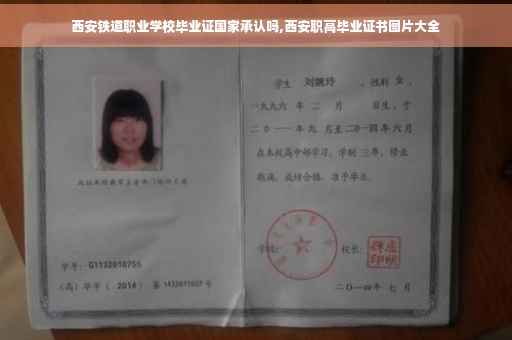 西安铁道职业学校毕业证国家承认吗,西安职高毕业证书图片大全
学生 刘婉玲 ，性别 女 ，
一九九六 年 二 月 日生，于
二〇一一 年 九 月至 二〇一四 年 六 月
在本校高中部学习，学制 三 年，修业
期满，成绩合格，准予毕业。
学校： 校长：
二〇一四 年 七 月
学号： G1132010755
(高) 毕字 ( 2014 )